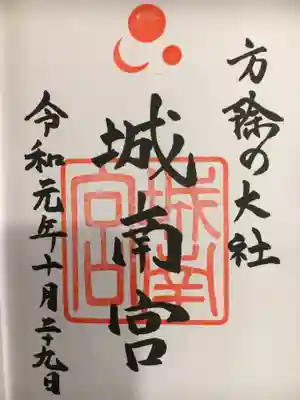 方除の大社
城南宮
城南宮印
令和元年十月二十九日